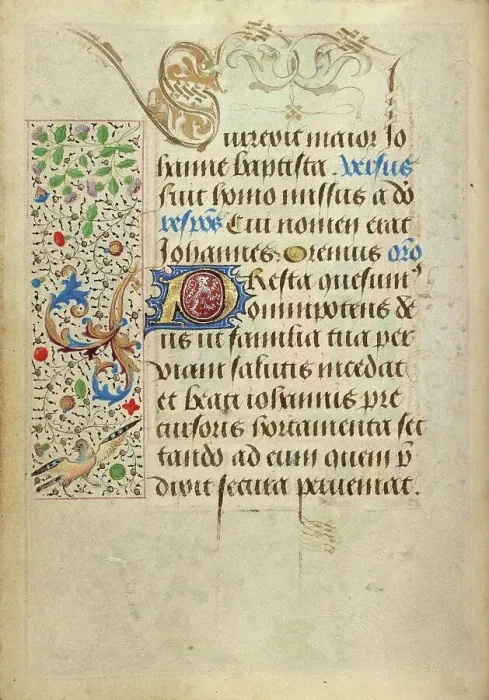 Surrexit maior Jo
hanne baptista. Versus
fuit homo missus a deo
respons Cui nomen erat
Johannes. Oremus oro
PResta quesumꝰ
omnipotens de
us ut familia tua per
viam salutis incedat
et beati iohannis pre
cursoris hortamenta sec
tando ad eum quem p̄
dixit secura perveniat.